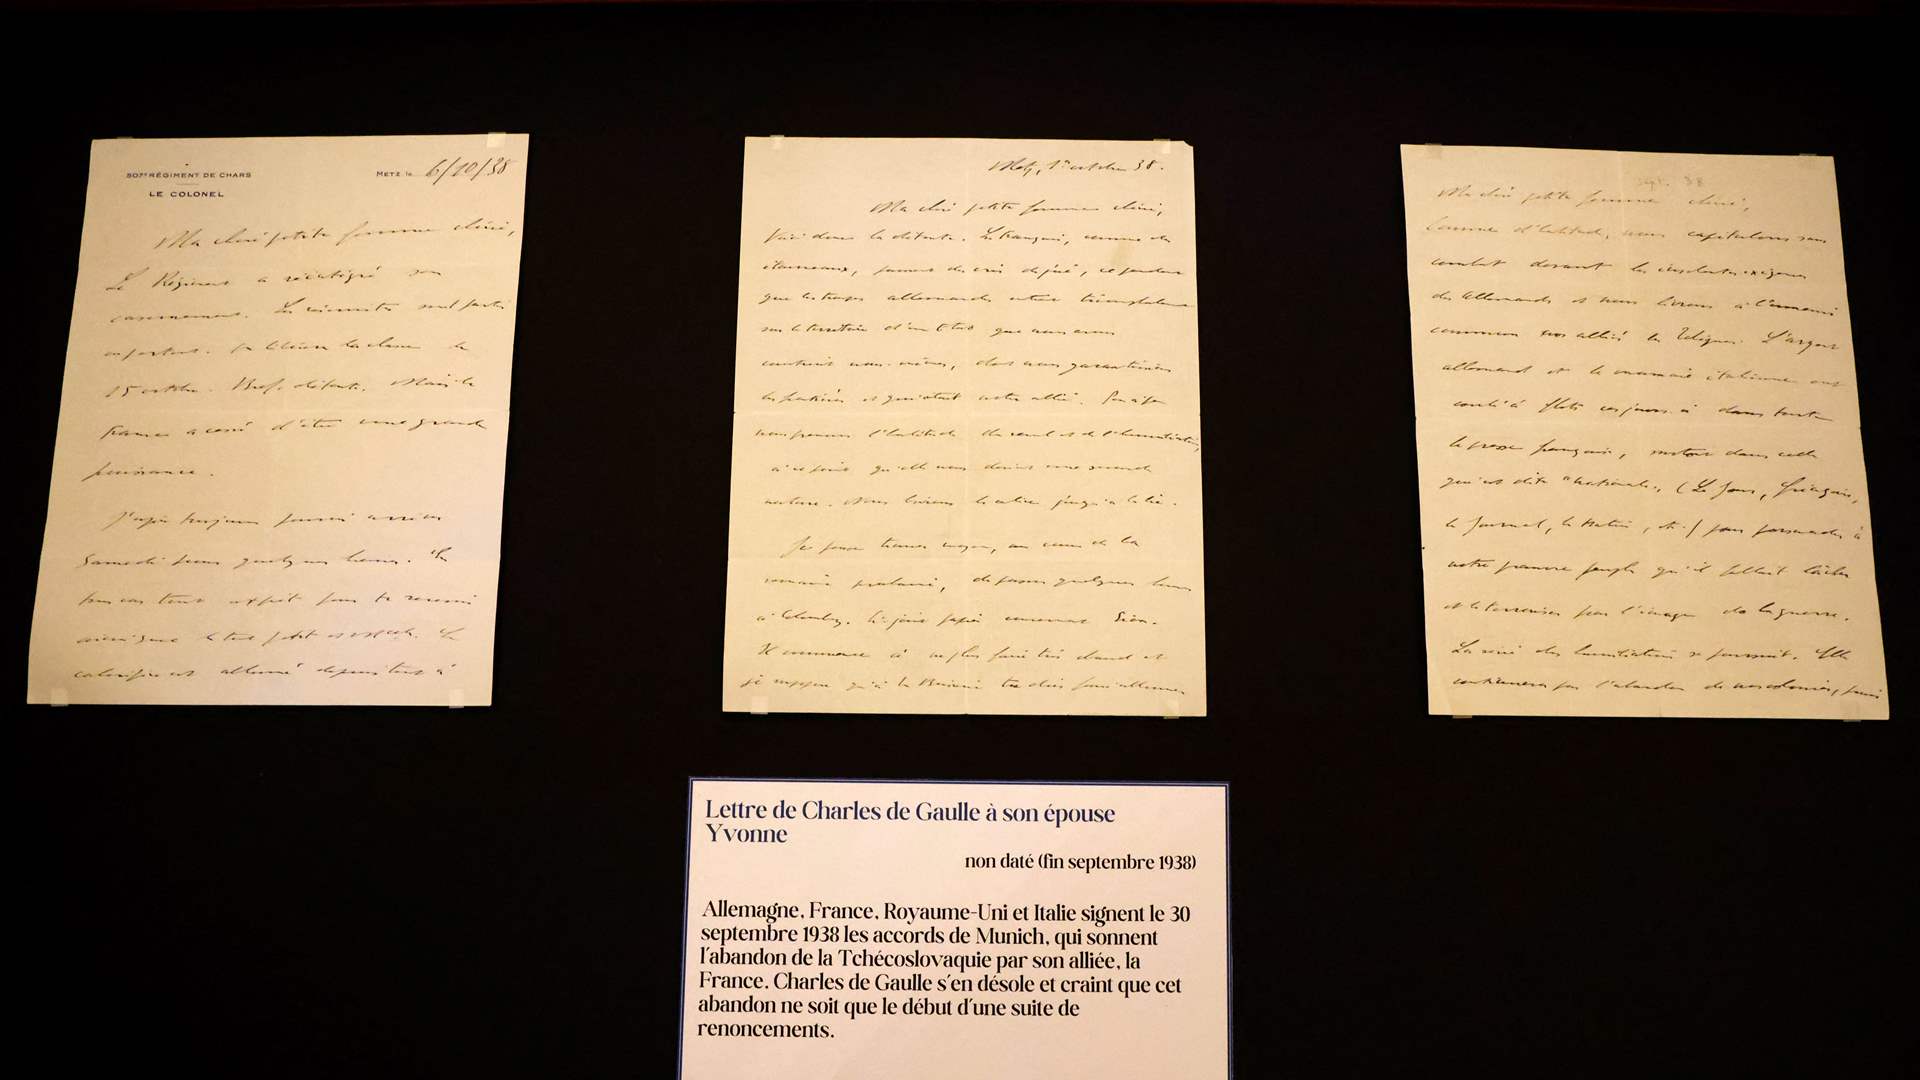 507e RÉGIMENT DE CHARS
LE COLONEL
METZ, le 6/10/38
Ma chère petite femme chérie,
Le Régiment a réintégré son
casernement. Les réservistes sont partis
ou partent. On libère la classe le
15 octobre. Bref, détente. Mais la
France a cessé d'être une grande
puissance.
J'espère toujours pouvoir arriver
Samedi pour quelques heures.
tout pour te revoir
ainsi que le tout petit
calorifère est allumé depuis
Metz, 1er octobre 38.
Ma chère petite femme chérie,
Voici donc la détente. Les Français, comme des
étourneaux, poussent des cris de joie, cependant
que les troupes allemandes entrent triomphalement
sur le territoire d'un Etat que nous avons
construit nous-mêmes, dont nous garantissions
les frontières et qui était notre allié. Peu à peu
nous prenons l'habitude du recul et de l'humiliation,
à ce point qu'elle nous devient une seconde
nature. Nous boirons le calice jusqu'à la lie.
Je pense trouver moyen, au cours de la
semaine prochaine, de passer quelques heures
à Colombey. Ci-joint papier concernant
Il commence à ne plus faire très chaud et
je suppose qu'à la Boisserie tu dois faire allumer
Sept. 38
Ma chère petite femme chérie,
Comme d'habitude, nous capitulons sans
combat devant les insolentes exigences
des Allemands et nous livrons à l'ennemi
commun nos alliés les Tchèques. L'argent
allemand et la monnaie italienne ont
coulé à flots ces jours-ci dans toute
la presse française, surtout dans celle
qui est dite "nationale", (Le Jour, Gringoire,
le Journal, le Matin, etc.) pour persuader à
notre pauvre peuple qu'il fallait lâcher
et le terroriser par l'image de la guerre.
La série des humiliations se poursuit. Elle
continuera par l'abandon de nos colonies, puis
Lettre de Charles de Gaulle à son épouse
Yvonne
non daté (fin septembre 1938)
Allemagne, France, Royaume-Uni et Italie signent le 30
septembre 1938 les accords de Munich, qui sonnent
l'abandon de la Tchécoslovaquie par son alliée, la
France. Charles de Gaulle s'en désole et craint que cet
abandon ne soit que le début d'une suite de
renoncements.